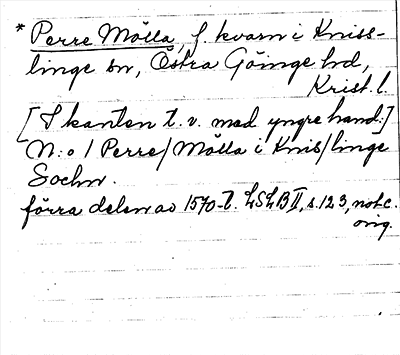 * Perre Mölla, f. kvarn i Kniss-
linge sn, Östra Göinge hd,
Krist. l.
[I kanten t. v. med yngre hand:]
N:o 1 Perre/Mölla i Knis/linge
Sochn.
förra delen av 1570-t. LSLB II, s. 123, not c.
orig.